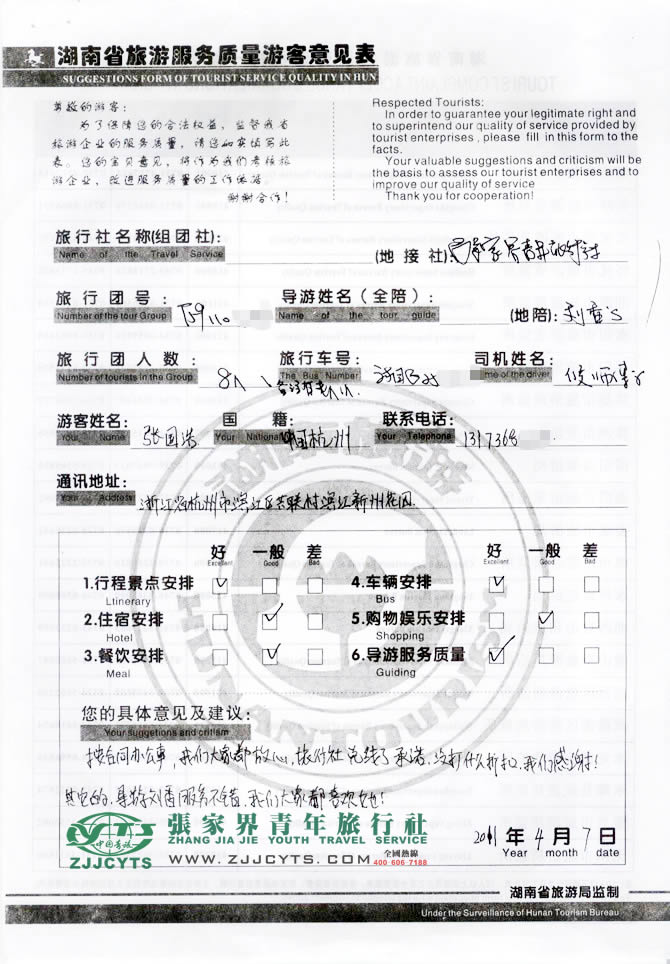 湖南省旅游服务质量游客意见表
SUGGESTIONS FORM OF TOURIST SERVICE QUALITY IN HUN
尊敬的游客:
为了保障您的合法权益,监督我省
旅游企业的服务质量,请您如实填写此
表。您的宝贵意见,将作为我们考核旅
游企业,改进服务质量的工作依据。
谢谢合作!
Respected Tourists:
In order to guarantee your legitimate right and
to superintend our quality of service provided by
tourist enterprises , please fill in this form to the
facts.
Your valuable suggestions and criticism will be
the basis to assess our tourist enterprises and to
improve our quality of service
Thank you for cooperation!
旅行社名称(组团社): (地接社)
Name of the Travel Service
旅行团号: 导游姓名(全陪): (地陪):
Number of the tour Group Name of the tour guide
旅行团人数: 8人 旅行车号: 司机姓名:
Number of tourists in the Group The Bus Number me of the driver
游客姓名: 张国浩 国籍: 中国杭州 联系电话: 1397368
Your Name Your National Your Telephone
通讯地址: 浙江省杭州市滨江区 联村滨江新州花园
Your Address
好 一般 差 好 一般 差
Excellent Good Bad Excellent Good Bad
1.行程景点安排 4.车辆安排
Ltinerary Bus
2.住宿安排 5.购物娱乐安排
Hotel Shopping
3.餐饮安排 6.导游服务质量
Meal Guiding
HUNAN TOURISM
您的具体意见及建议:
Your suggetions and critism
按合同办公事,我们大家都放心,旅行社兑现了承诺,没打什么折扣,我们感谢!
其它的,导游刘 服务不错,我们大家都喜欢她!
CYTS
中国青旅
ZJJCYTS
張家界青年旅行社
ZHANG JIA JIE YOUTH TRAVEL SERVICE
WWW.ZJJCYTS.COM 全國熱線 400-606-7188
2011年4月7日
Year month date
湖南省旅游局监制
Under the Surveillance of Hunan Tourism Bureau